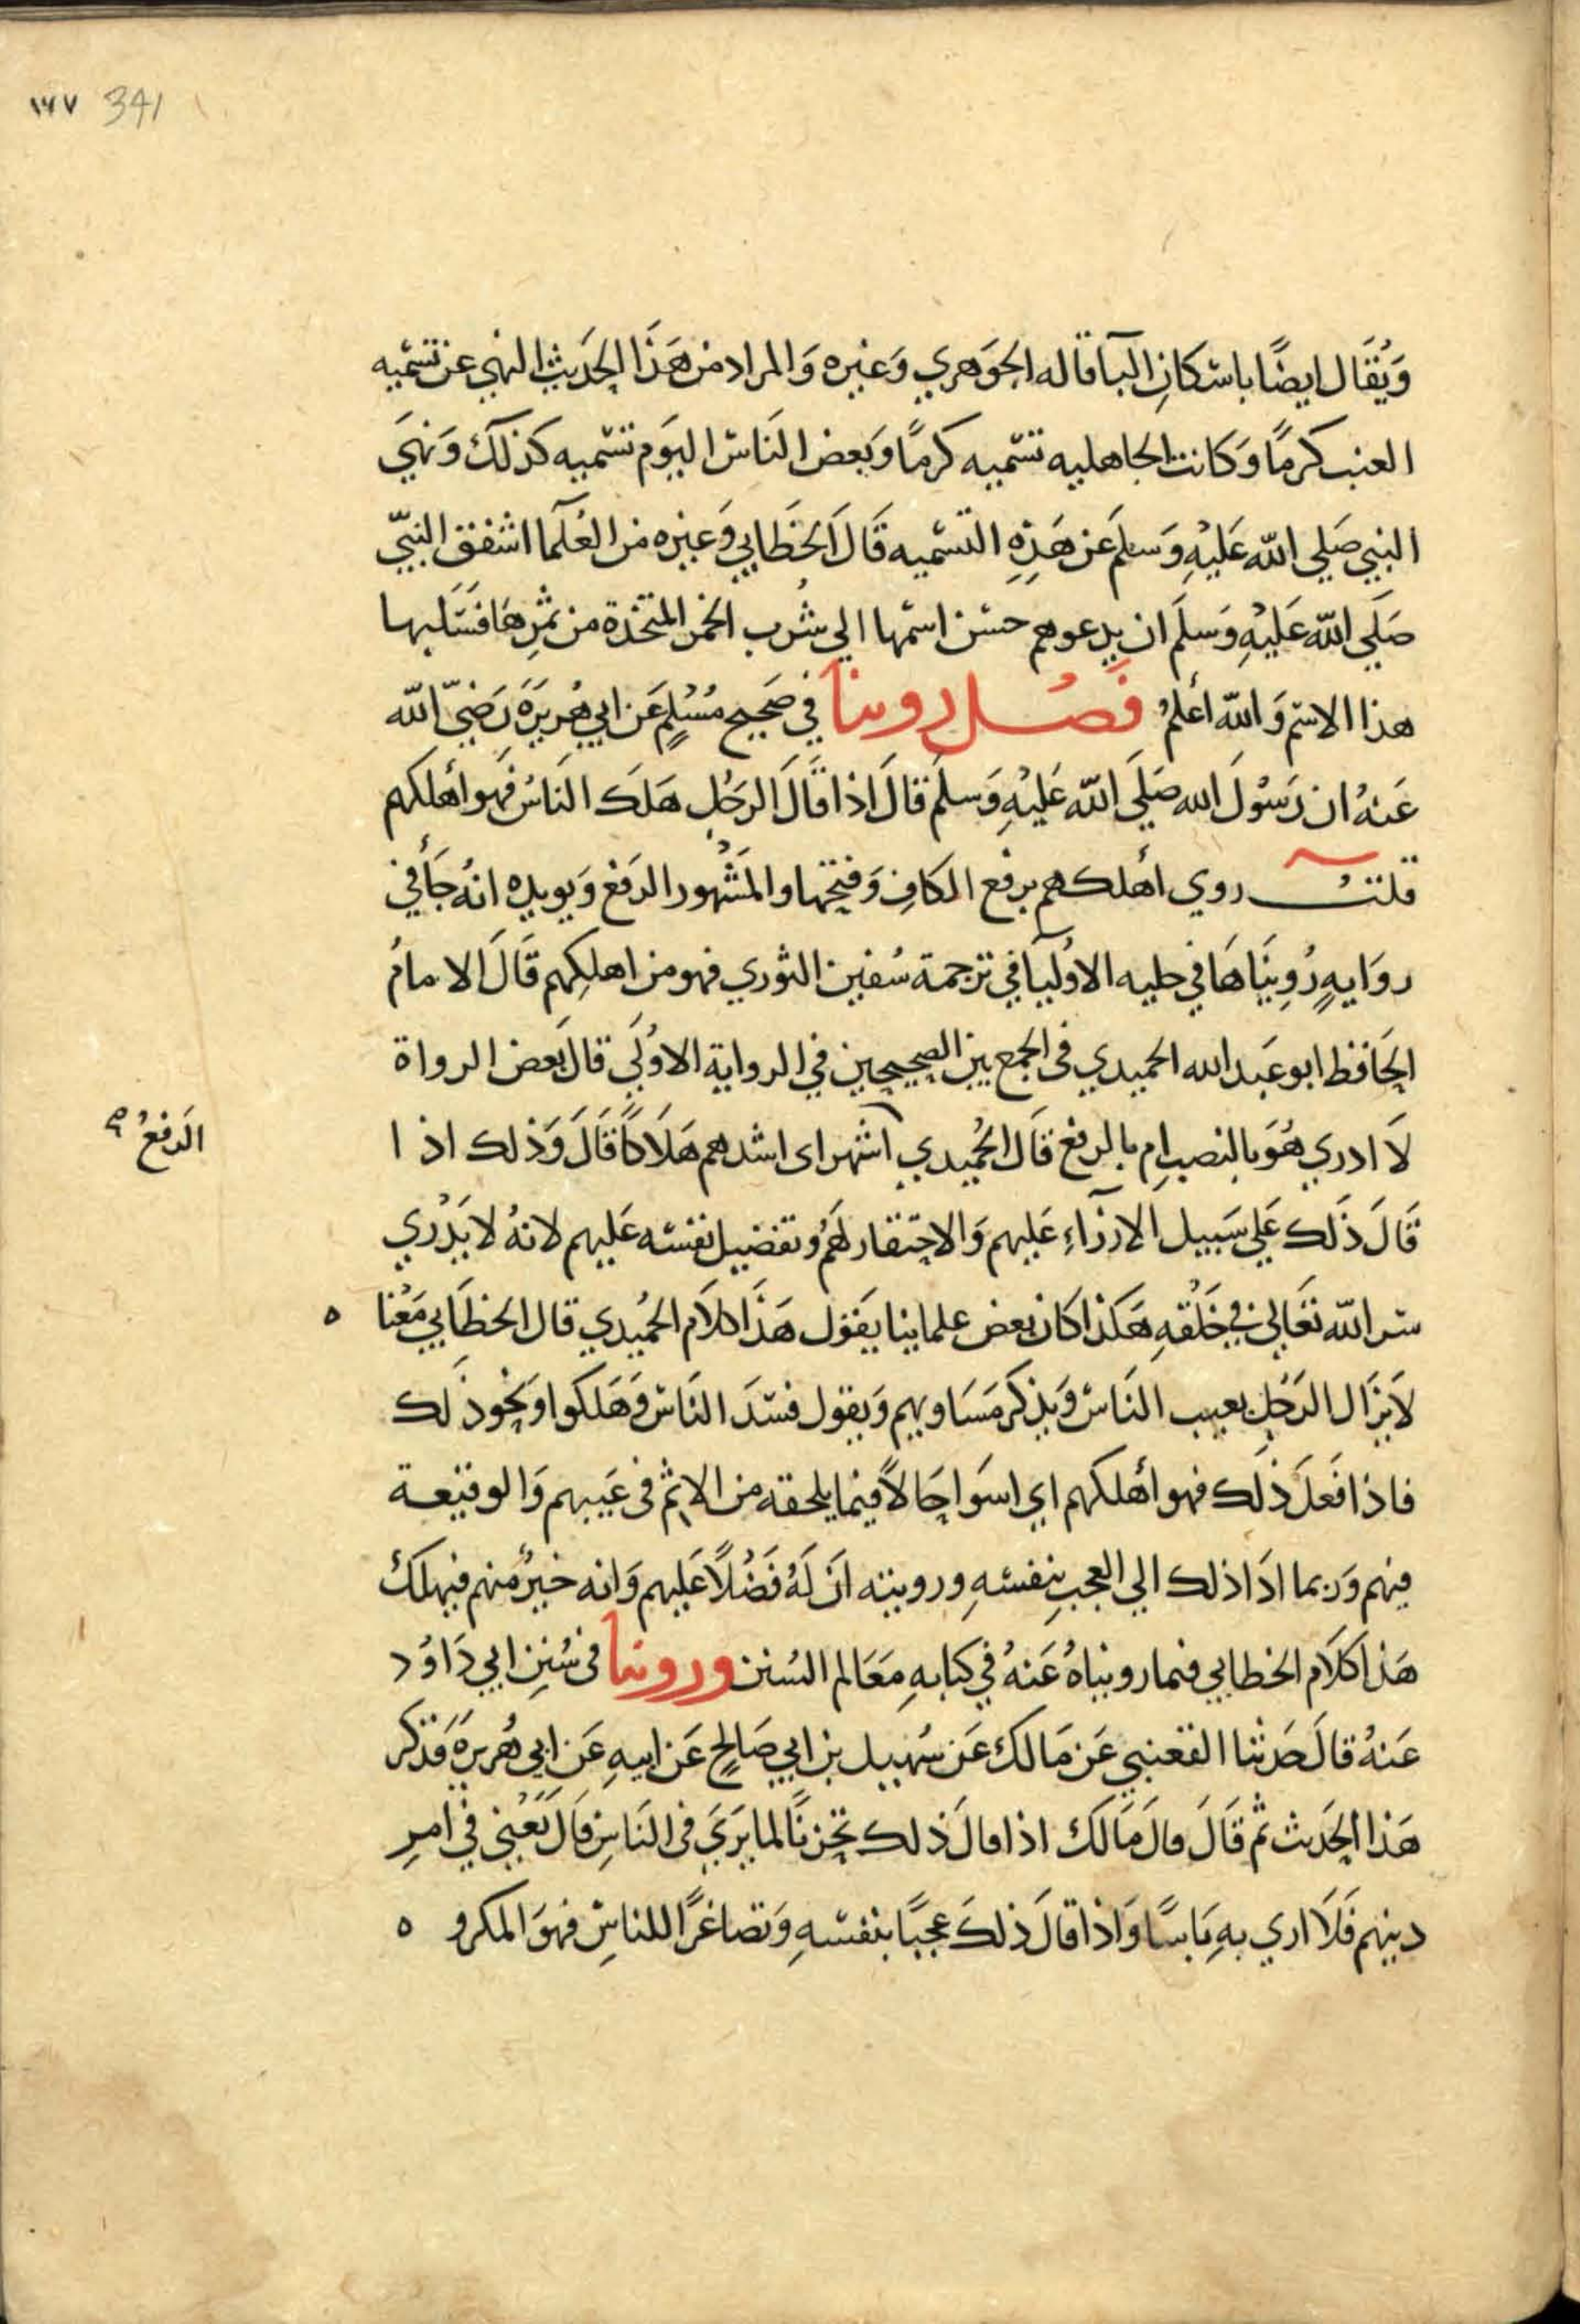 ١٦٧ 341
وَيُقَال ايضًا باسْكانِ البآ قاله الجَوهري وَغيره وَالمراد من هَذَا الحَديث النهي عن تسْميه
العنب كرمًا وَكانت الجاهليه تسْميه كرمًا وَبعض النَاسْ اليَوم تسْميه كذلكَ وَنهَيَ
النبي صَلي الله عَليْهِ وَسلمَ عن هَذِهِ التسْميه قَالَ الخَطَابي وَغيره من العُلَمآ اشفق النبيّ
صَلَي الله عَليْهِ وَسلمَ ان يدعوهم حسْن اسْمها الي شُرب الخمر المتخذة من ثمرِهَا فسَلبها
هذا الاسْم وَالله أعلمُ فَصُل روينا في صَحيح مُسْلمٍ عَن ابي هُريرَة رَضيّ الله
عَنهُ ان رَسُولَ الله صَلَي الله عَليْهِ وَسلمَ قالَ اذا قَالَ الرجُل هَلَكَ النَاسُ فَهو أهلكهم
قلتُ روي أهلكهم برفع الكافِ وَفتحها والمَشْهور الرَفع وَيويده انهُ جَآ في
روَايهٍ رُوِينَاهَا في حليه الاوْليَآ في ترجمة سُفين الثوري فهو من اهلكِهم قَالَ الامامُ
الحَافظ ابو عَبد الله الحميدي في الجمع بين الصحيحين في الرواية الاوُلَي قالَ بَعض الرواة
لَا ادري هُوَ بالنصب ام بالرفع قَالَ الحُميدي اشهر اى اشدهم هَلَاكًا قَالَ وَذلك اذا
الرَفعُ صح
قَالَ ذَلكَ عَلي سَبيل الازرَآءِ عَليهم وَالاحتقار لهَمُ وتفضيل نفسْه عَليهم لانهُ لا يَدْري
سْر الله تعَالي في خَلْقهِ هَكذا كانَ بعض علماينا يَقول هَذَا كلَام الحُميدي قال الخطَابي مَعْنا ه
لَا يزَال الرَجُل يعيب النَاسْ وَيذكر مَسَاويهم وَيقول فسْدَ النَاسْ وَهَلكوا وَنحو ذلك
فاذا فَعلَ ذَلكَ فهو أهلكهم اي اسوَا حَالاً فيما يلحقه من الاثم في عَيبهم وَالوقيعة
فيهم وَربما ادَا ذلك الي العجبِ بنفسْهِ وروُيته انَ لَهُ فَضْلاً عَليهم وَانه خيرٌ منهم فيهلكُ
هَذا كلَام الخطابي فيما رويناهُ عَنهُ في كتابهِ مَعَالم السُنن وروينا فى سُننِ ابي دَاوُد
عَنهُ قالَ حَدثنا القعنبي عَن مَالكَ عَن سُهيل بن ابي صَالحٍ عَن ابيهِ عَن ابي هُريرة فَذكر
هَذا الحَديث ثم قَالَ قالَ مَالكَ اذا قالَ ذلك تحزنًا لما يَرَيَ فى النَاسِ قالَ يَعْني في امرِ
دينهم فَلَا اري بهِ بَاسًا وَاذا قالَ ذلكَ عجبًا بنفسْهِ وَتصاغرًا للناسِ فهوَ المكرو ه